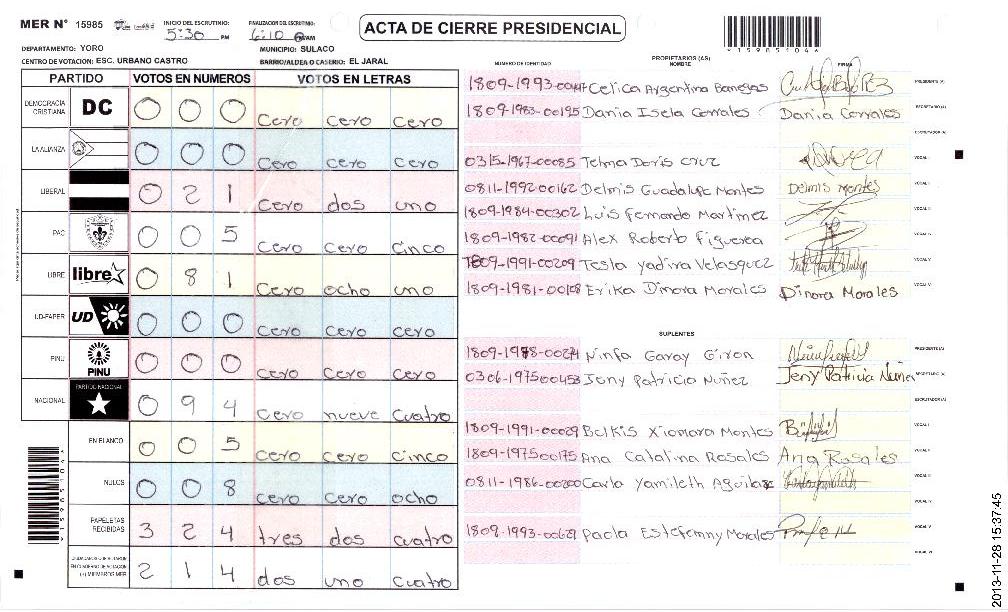 MER N° 15985 INICIO DEL ESCRUTINIO: 5:30 PM FINALIZACION DEL ESCRUTINIO: 6:10 AM
ACTA DE CIERRE PRESIDENCIAL
DEPARTAMENTO: YORO MUNICIPIO: SULACO
CENTRO DE VOTACION: ESC. URBANO CASTRO BARRIO/ALDEA O CASERIO: EL JARAL
PARTIDO VOTOS EN NUMEROS VOTOS EN LETRAS
DEMOCRACIA CRISTIANA DC 0 0 0 Cero cero cero
LA ALIANZA 0 0 0 Cero cero cero
LIBERAL 0 2 1 Cero dos uno
PAC 0 0 5 Cero Cero Cinco
LIBRE libre 0 8 1 Cero ocho uno
UD-FAPER UD 0 0 0 Cero Cero cero
PINU PINU 0 0 0 Cero Cero cero
NACIONAL PARTIDO NACIONAL 0 9 4 Cero nueve Cuatro
EN BLANCO 0 0 5 Cero cero cinco
NULOS 0 0 8 Cero cero ocho
PAPELETAS RECIBIDAS 3 2 4 tres dos cuatro
CIUDADANOS QUE VOTARON EN CUADERNO DE VOTACION (+) MIEMBROS MER 2 1 4 dos uno Cuatro
*159851046*
PROPIETARIOS (AS)
NUMERO DE IDENTIDAD NOMBRE FIRMA
Celica Argentina Banegas PRESIDENTE (A)
1809-1983-00195 Dania Isela Corrales Dania Corrales SECRETARIO (A)
ESCRUTADOR (A)
0315-1967-00085 Telma Doris Cruz VOCAL I
0811-1992-00162 Delmis Guadalupe Montes Delmis Montes VOCAL II
1809-1984-00302 Luis Fernando Martinez VOCAL III
1809-1982-00091 Alex Roberto Figueroa VOCAL IV
1809-1991-00209 Tesla Yadira Velasquez VOCAL V
1809-1981-00108 Erika Dinora Morales Dinora Morales VOCAL VI
SUPLENTES
1809-1978-00274 Ninfa Garay Giron PRESIDENTE (A)
0306-1975-00453 Jeny Patricia Nuñez Jeny Patricia Nuñez SECRETARIO (A)
ESCRUTADOR (A)
1809-1991-00029 Belkis Xiomara Montes VOCAL I
1809-1975-00175 Ana Catalina Rosales Ana Rosales VOCAL II
0811-1986-00200 Carla Yamileth Aguilar VOCAL III
VOCAL IV
1809-1993-00621 Paola Estefanny Morales VOCAL V
VOCAL VI
2013-11-28 15:37:45